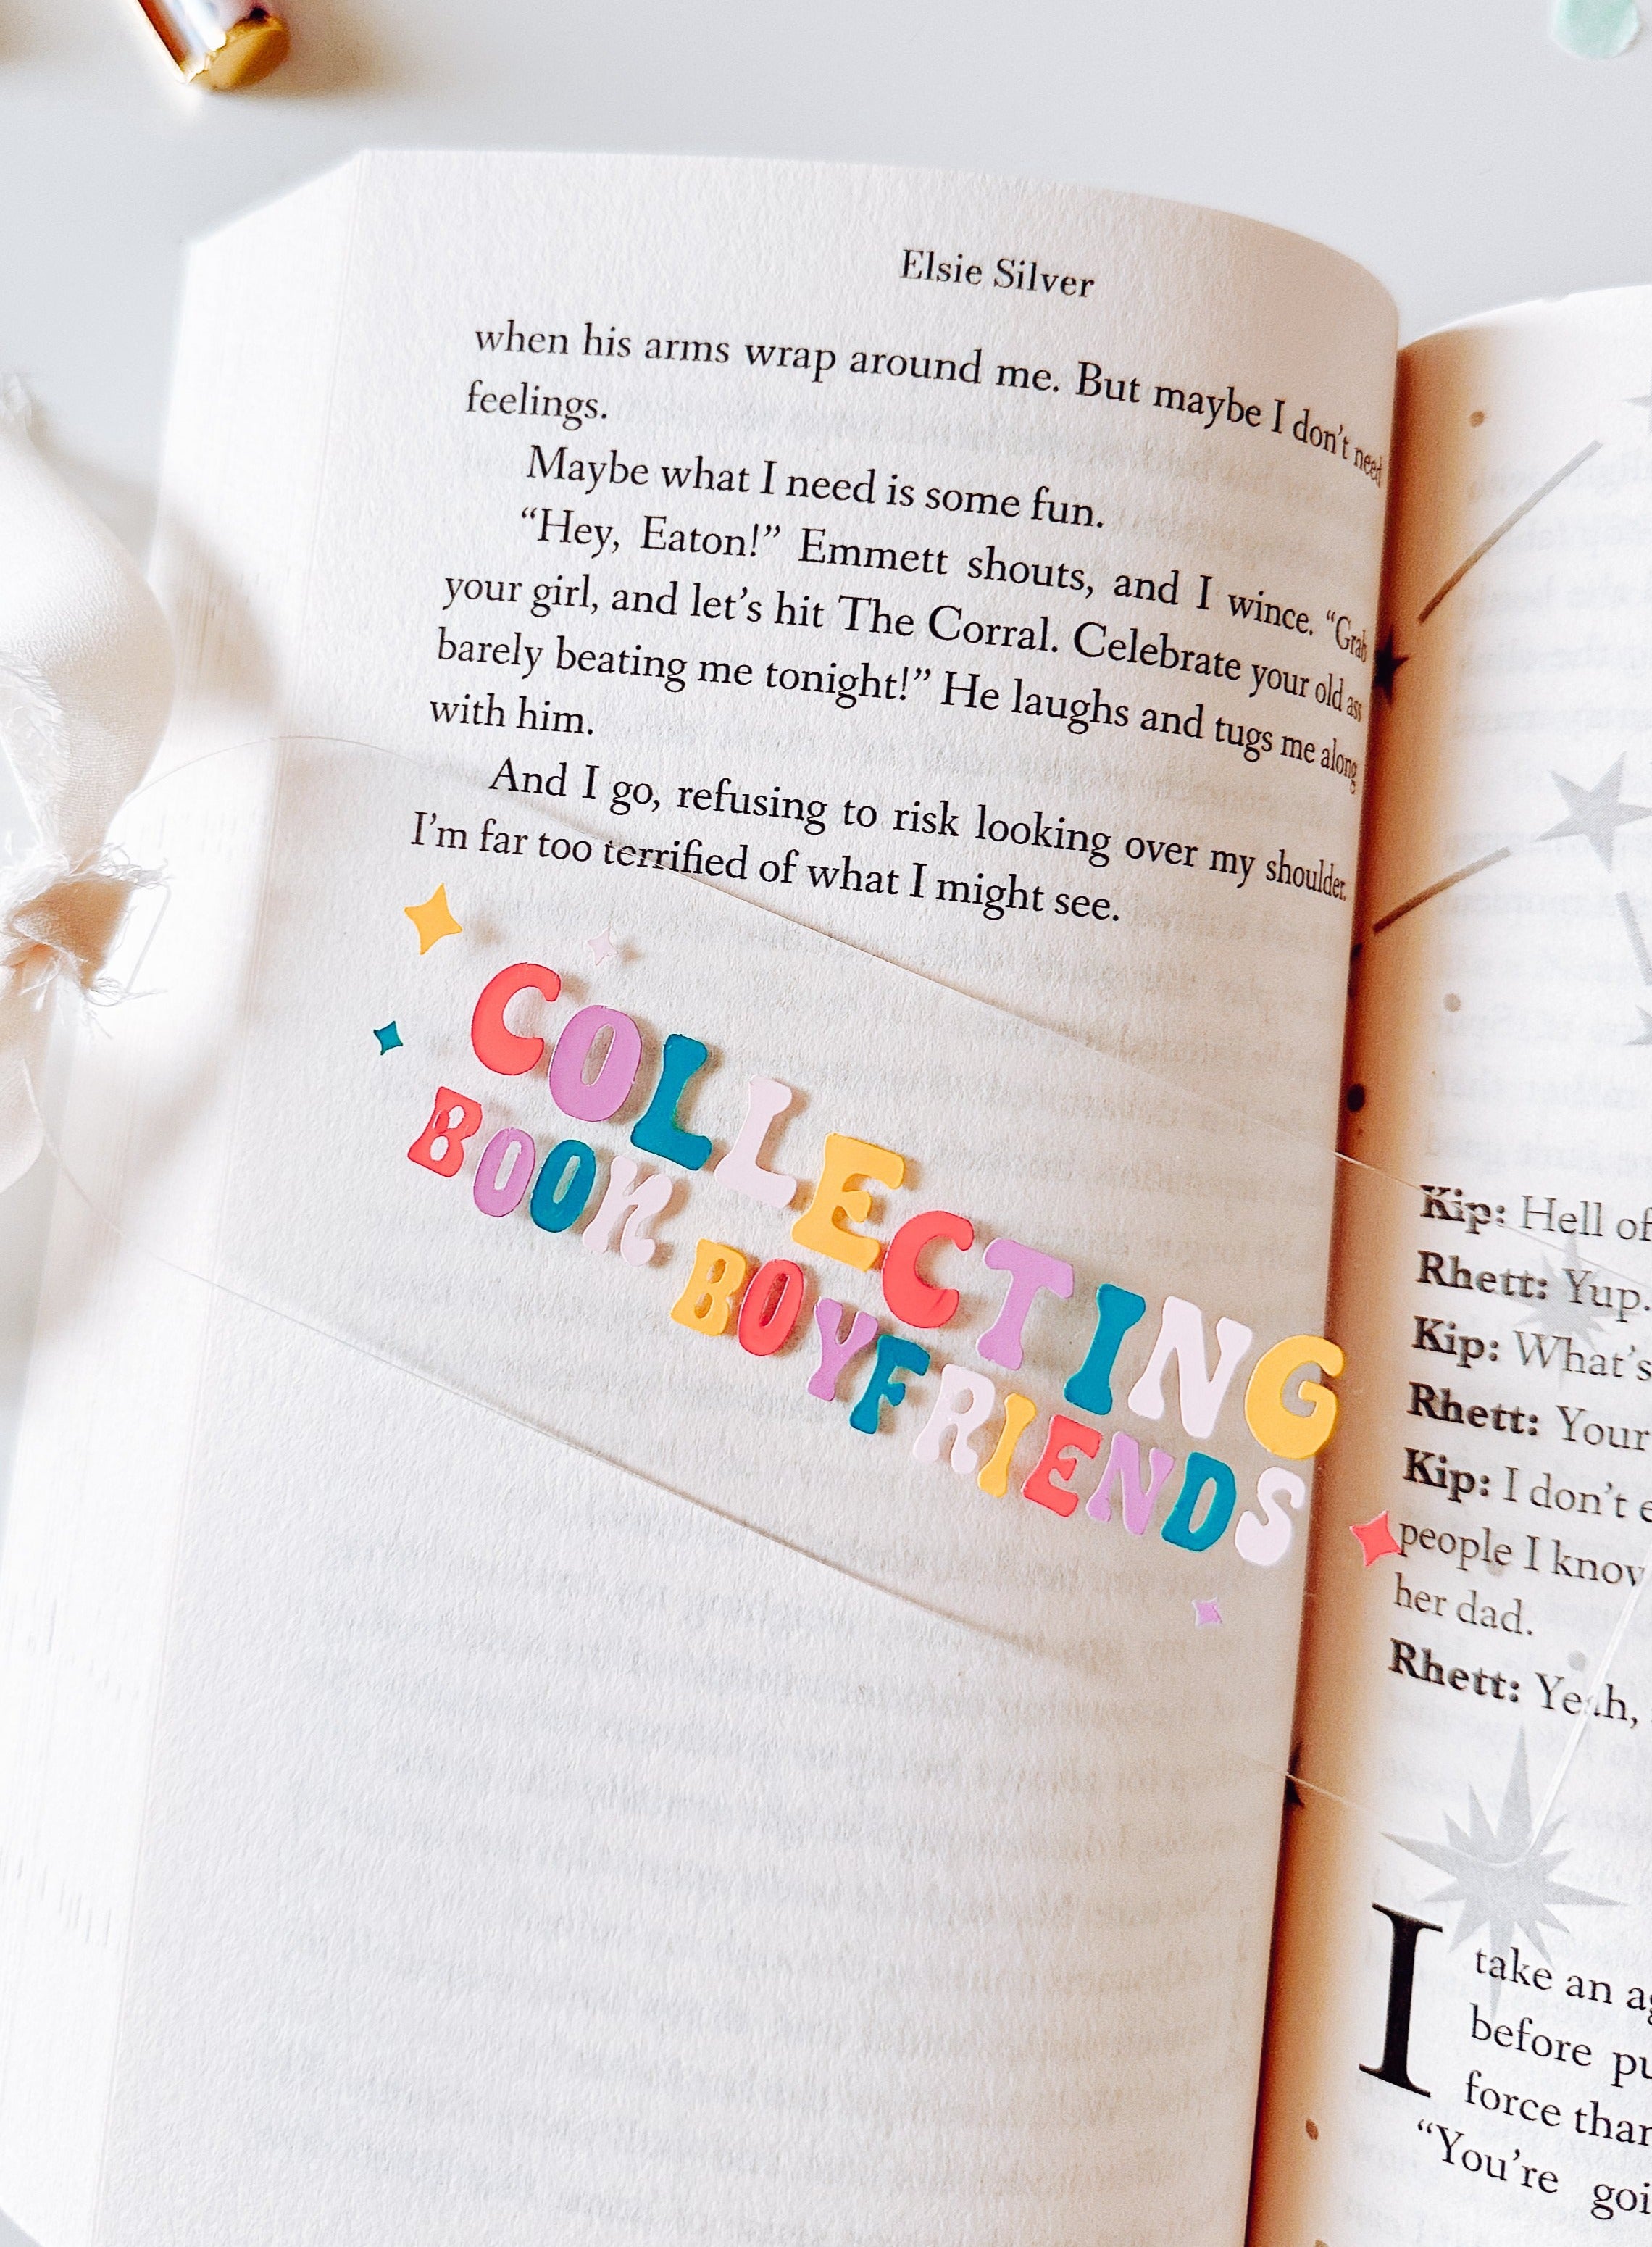 Elsie Silver
when his arms wrap around me. But maybe I don't need
feelings.
Maybe what I need is some fun.
“Hey, Eaton!” Emmett shouts, and I wince. “Grab
your girl, and let’s hit The Corral. Celebrate your old ass
barely beating me tonight!” He laughs and tugs me along
with him.
And I go, refusing to risk looking over my shoulder.
I’m far too terrified of what I might see.
COLLECTING
BOOK BOYFRIENDS
Kip: Hell of
Rhett: Yup.
Kip: What’s
Rhett: Your
Kip: I don’t
people I know
her dad.
Rhett: Yeah,
I take an
before
force than
“You’re